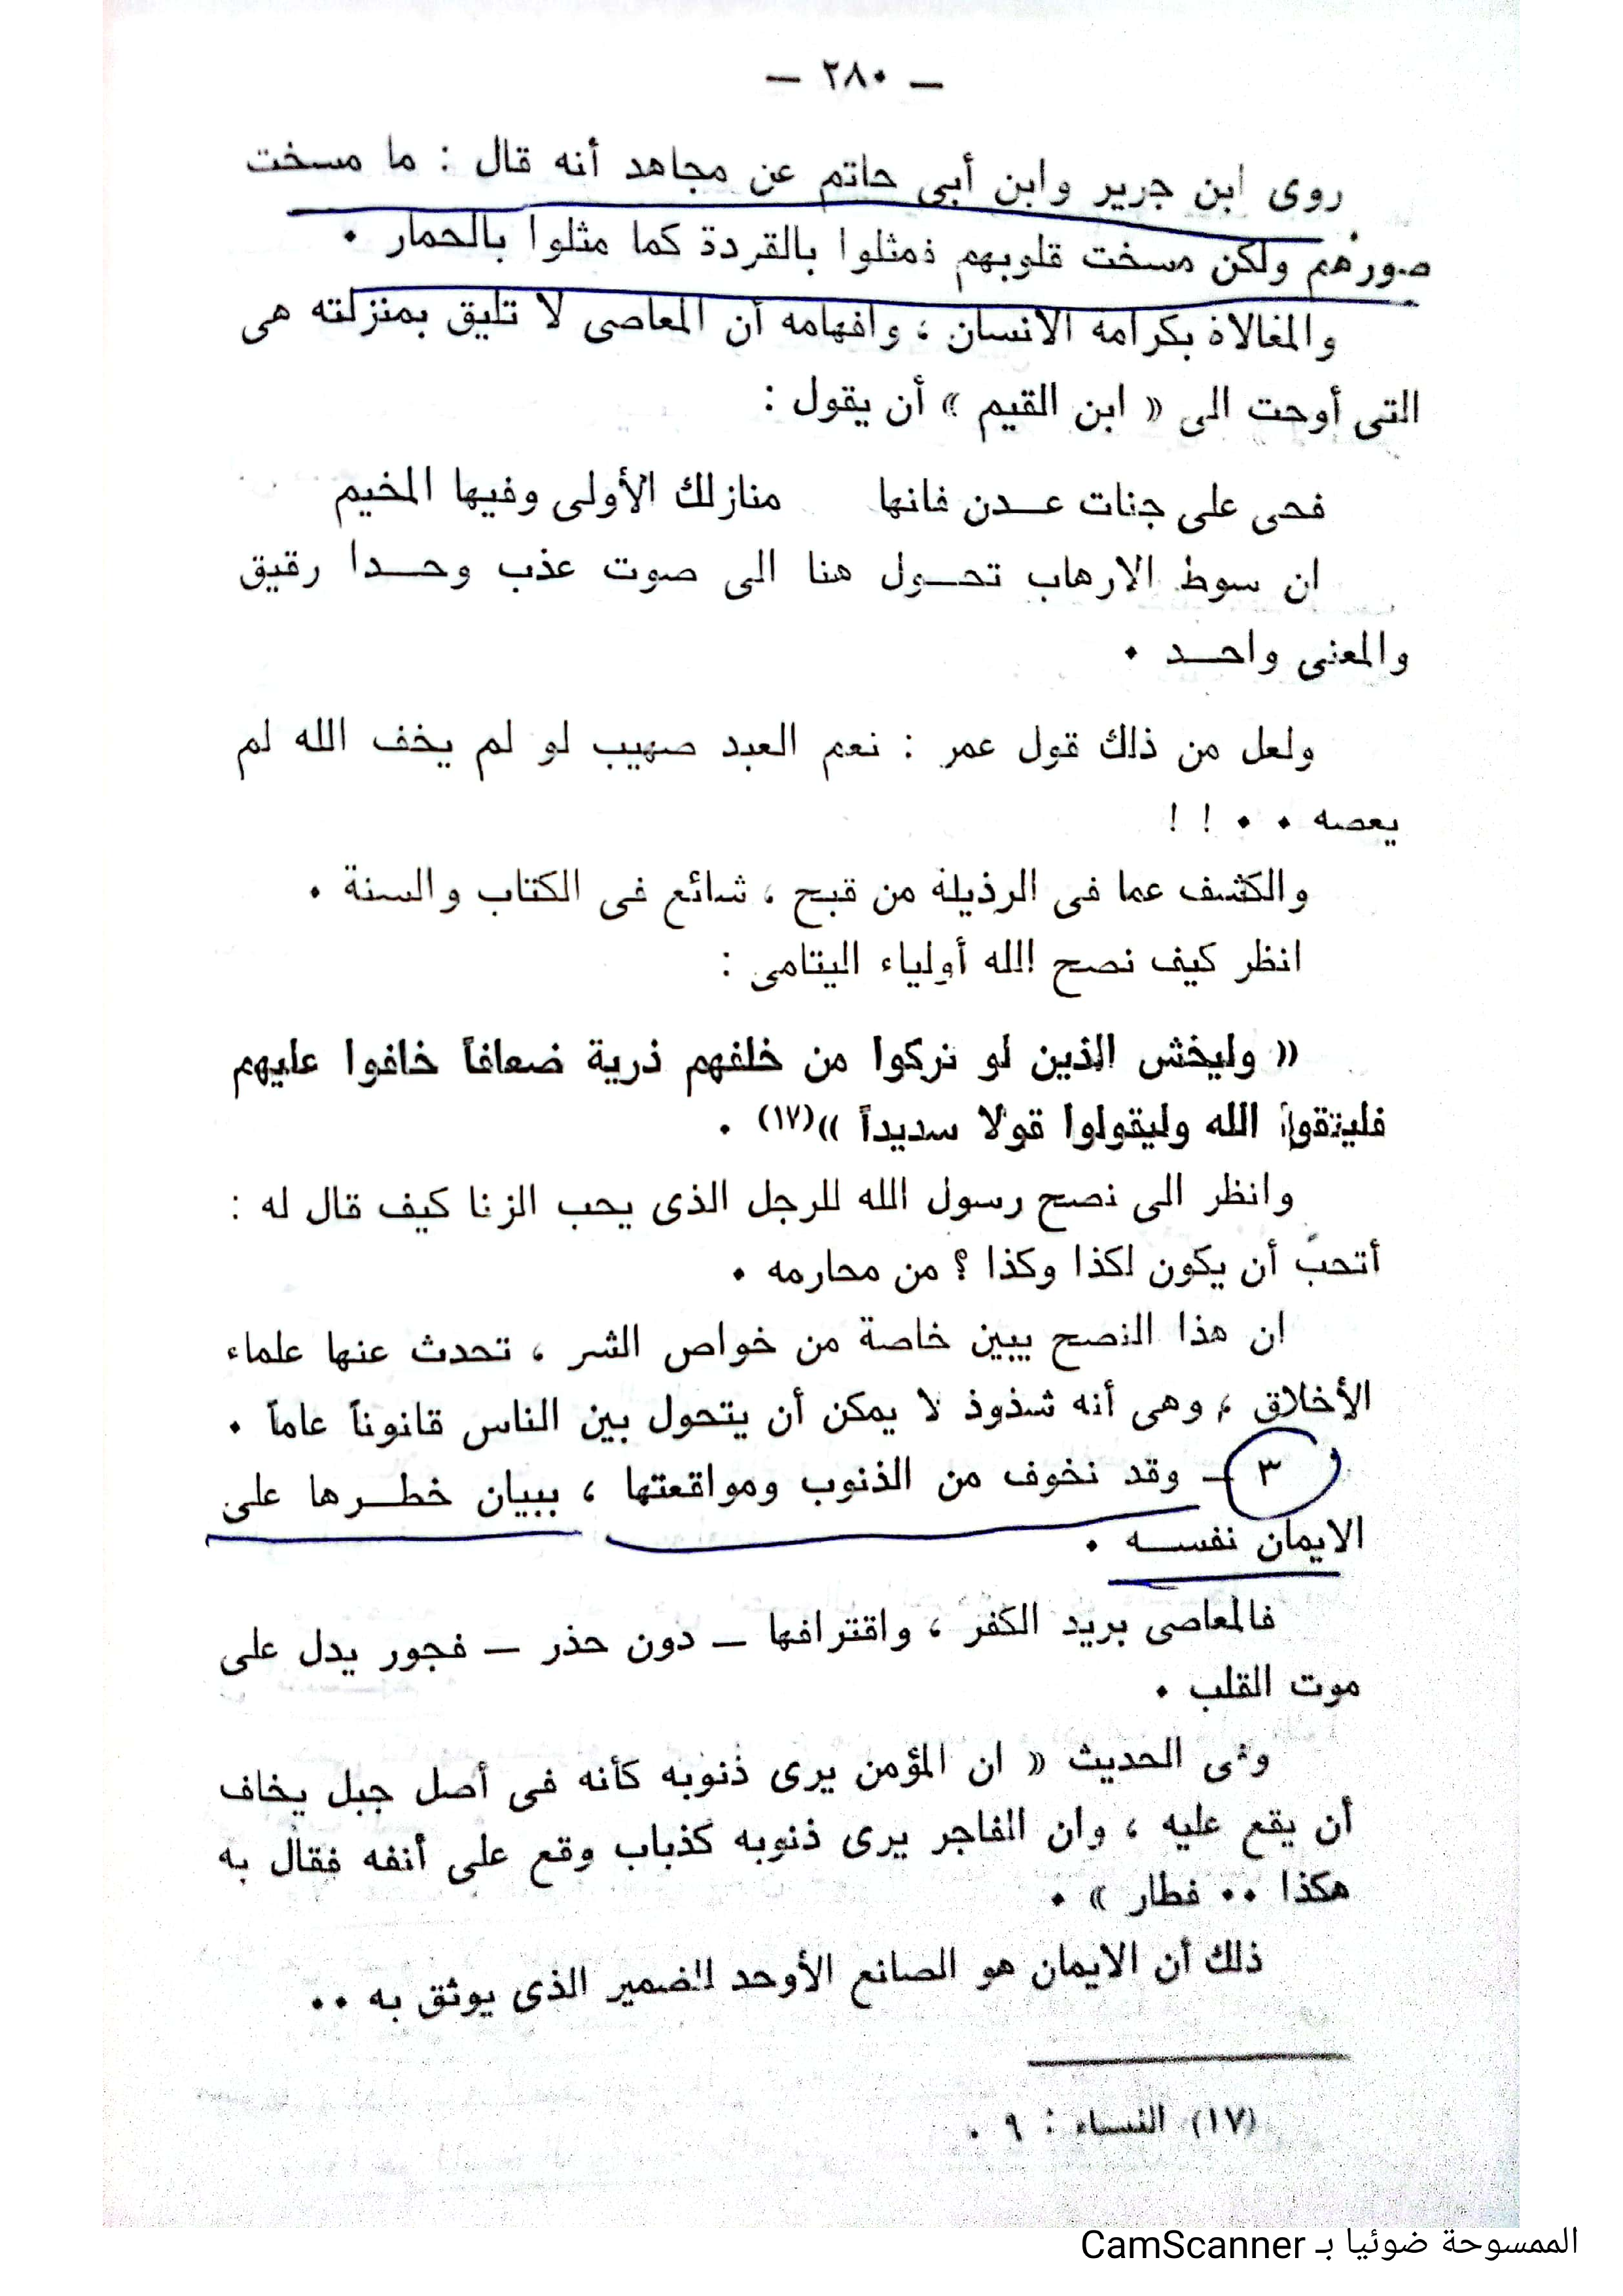 — ٢٨٠ —
روى ابن جرير وابن أبى حاتم عن مجاهد أنه قال : ما مسخت
صورهم ولكن مسخت قلوبهم فمثلوا بالقردة كما مثلوا بالحمار .
والمغالاة بكرامه الانسان ، وافهامه أن المعاصى لا تليق بمنزلته هى
التى أوحت الى « ابن القيم » أن يقول :
فحى على جنات عدن فانها منازلك الأولى وفيها المخيم
ان سوط الارهاب تحول هنا الى صوت عذب وحدا رقيق
والمعنى واحد .
ولعل من ذلك قول عمر : نعم العبد صهيب لو لم يخف الله لم
يعصه . . ! !
والكشف عما فى الرذيلة من قبح ، شائع فى الكتاب والسنة .
انظر كيف نصح الله أولياء اليتامى :
« وليخش الذين لو تركوا من خلفهم ذرية ضعافاً خافوا عليهم
فليتقوا الله وليقولوا قولا سديداً »(١٧) .
وانظر الى نصح رسول الله للرجل الذى يحب الزنا كيف قال له :
أتحبّ أن يكون لكذا وكذا ؟ من محارمه .
ان هذا النصح يبين خاصة من خواص الشر ، تحدث عنها علماء
الأخلاق ، وهى أنه شذوذ لا يمكن أن يتحول بين الناس قانوناً عاماً .
٣ — وقد نخوف من الذنوب ومواقعتها ، ببيان خطرها على
الايمان نفسه .
فالمعاصى بريد الكفر ، واقترافها — دون حذر — فجور يدل على
موت القلب .
وفى الحديث « ان المؤمن يرى ذنوبه كأنه فى أصل جبل يخاف
أن يقع عليه ، وان الفاجر يرى ذنوبه كذباب وقع على أنفه فقال به
هكذا . . فطار » .
ذلك أن الايمان هو الصانع الأوحد للضمير الذى يوثق به . .
(١٧) النساء : ٩ .
الممسوحة ضوئيا بـ CamScanner